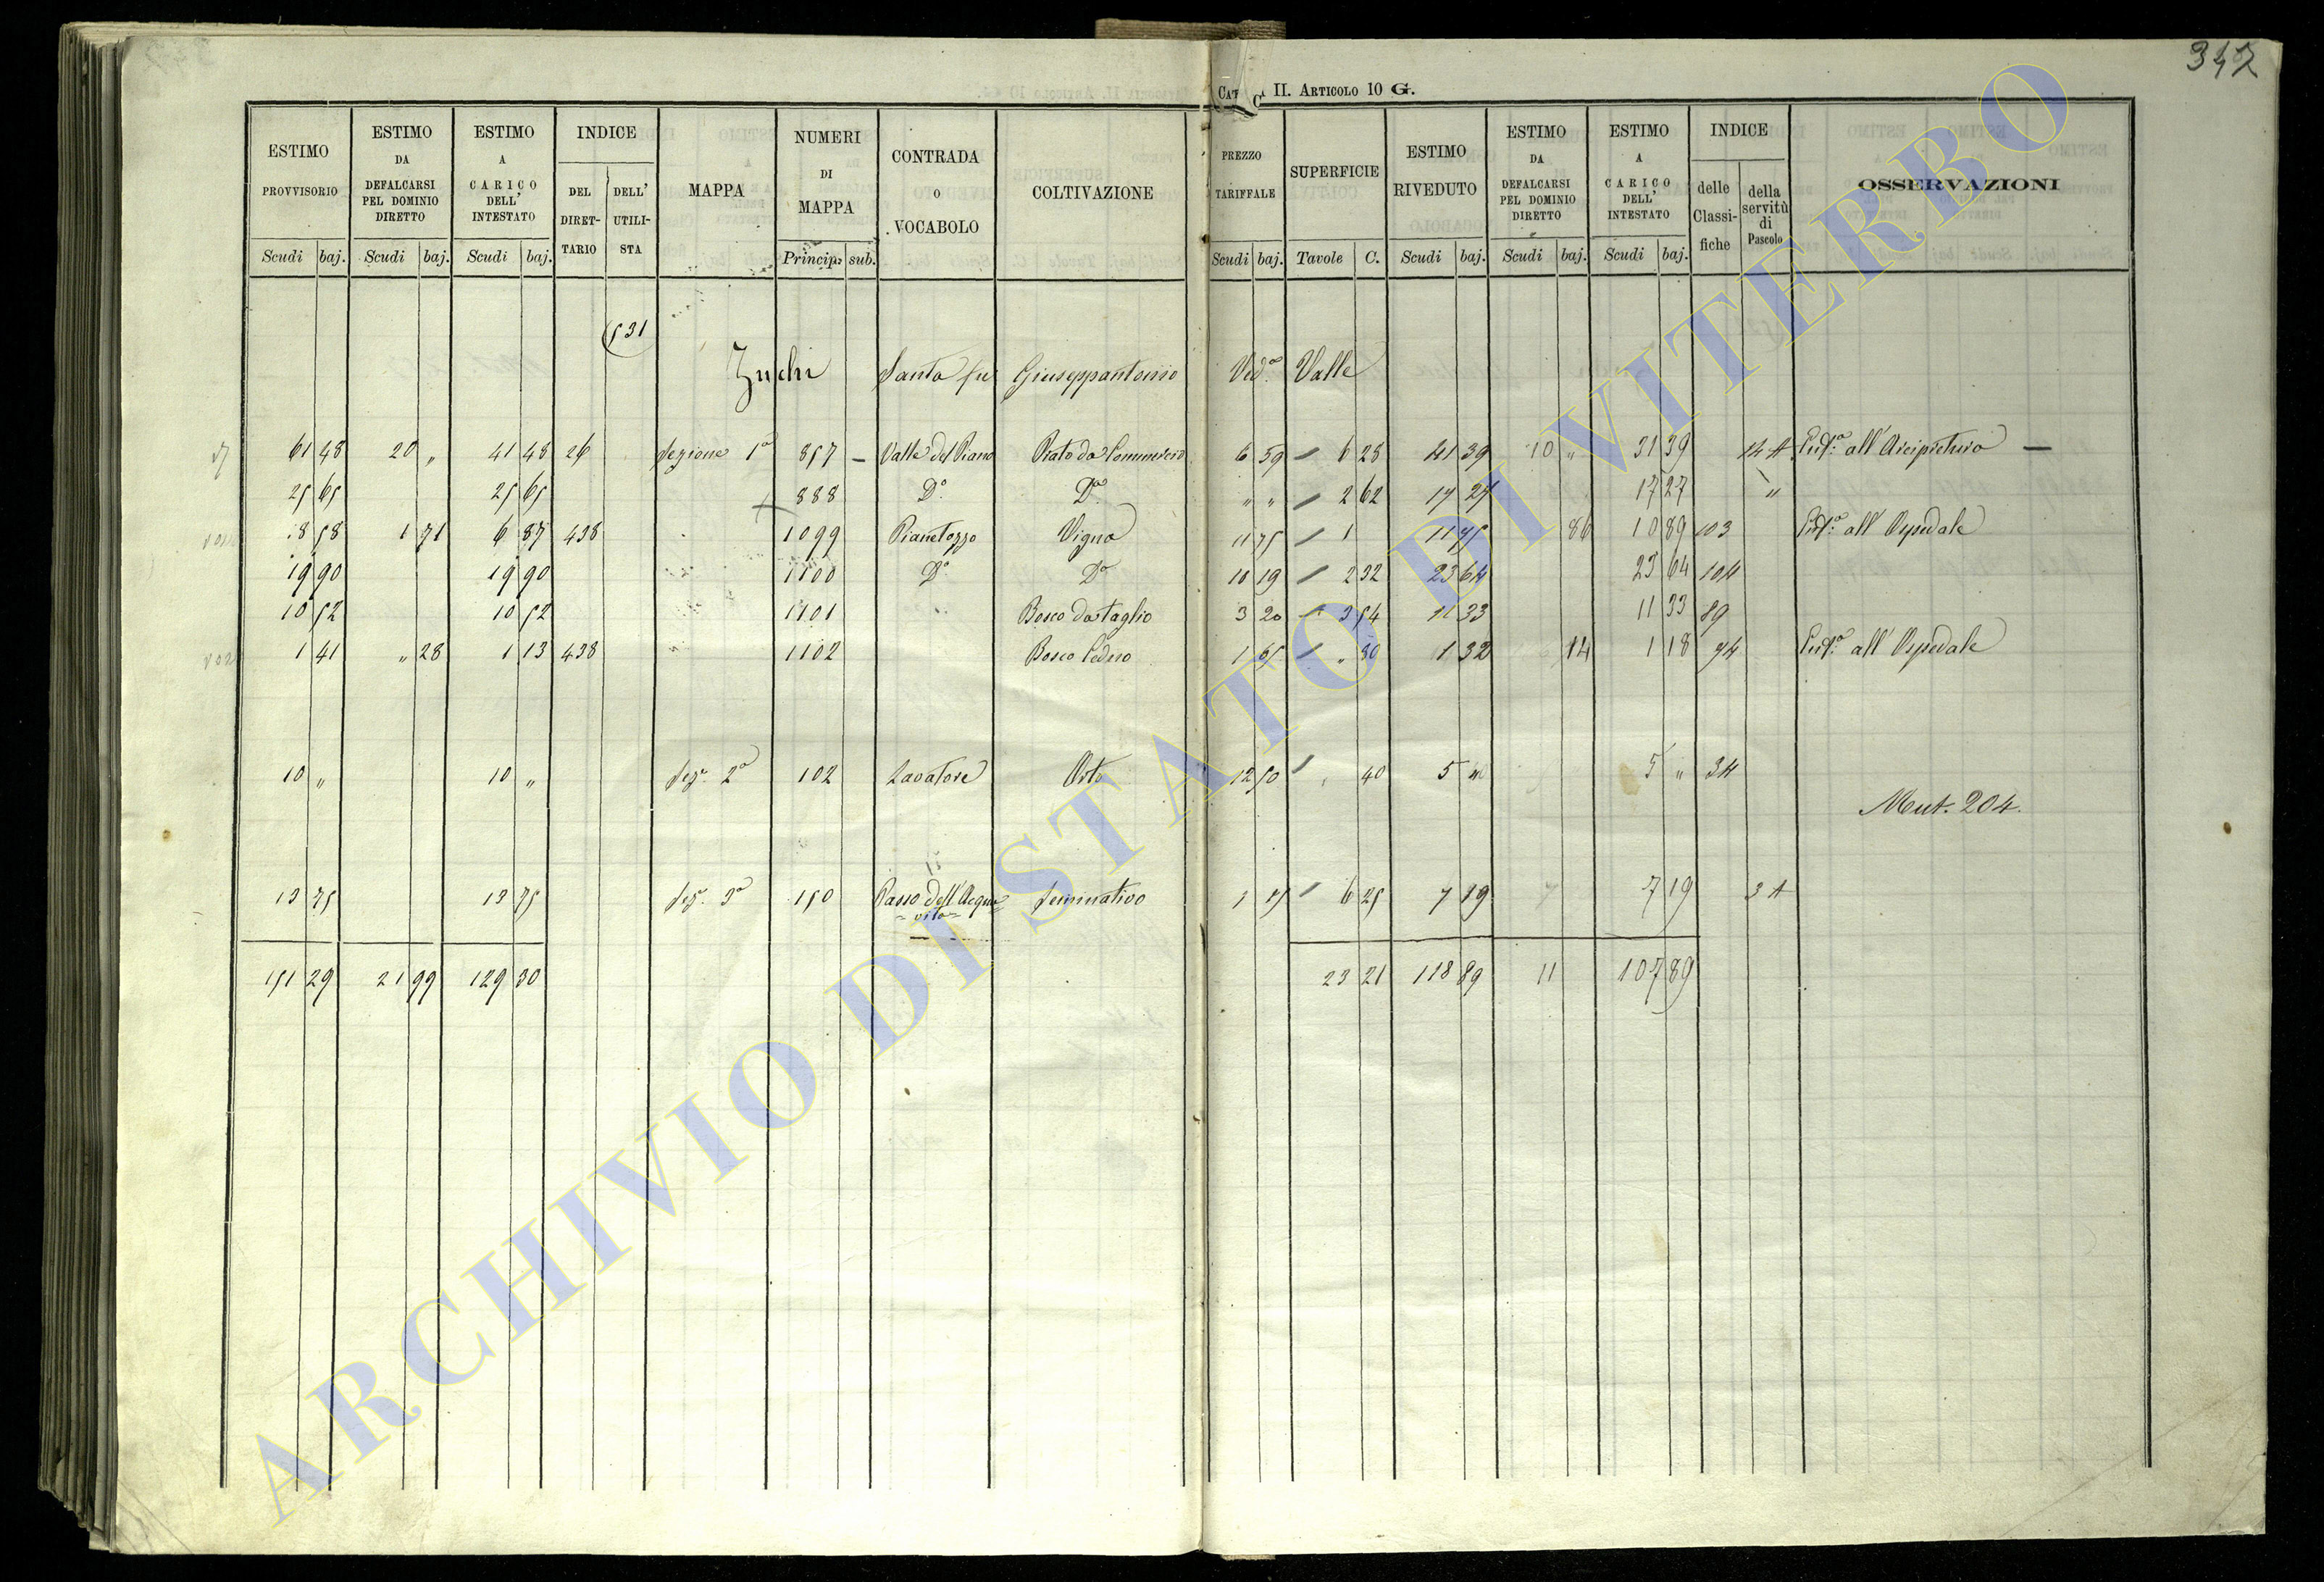 342
II. Articolo 10 G.
ESTIMO PROVVISORIO Scudi baj.
ESTIMO DA DEFALCARSI PEL DOMINIO DIRETTO Scudi baj.
ESTIMO A CARICO DELL' INTESTATO Scudi baj.
INDICE DEL DIRETTARIO DELL' UTILISTA
MAPPA
NUMERI DI MAPPA Princip. sub.
CONTRADA O VOCABOLO
COLTIVAZIONE
PREZZO TARIFFALE Scudi baj.
SUPERFICIE Tavole C.
ESTIMO RIVEDUTO Scudi baj.
ESTIMO DA DEFALCARSI PEL DOMINIO DIRETTO Scudi baj.
ESTIMO A CARICO DELL' INTESTATO Scudi baj.
INDICE delle Classifiche della servitù di Pascolo
OSSERVAZIONI
531
Zuchi Santa fu Giuseppantonio Ved.a Valle
61 48 20 „ 41 48 26 Sezione 1a 857 – Valle del Piano Prato da Commercio 6 59 6 28 41 39 10 „ 31 39 14 A all' Arcipretura —
25 65 25 65 888 D.o D.o „ „ 2 62 17 27 17 27 „
8 58 1 71 6 87 438 1099 Pianetozzo Vigna 11 75 1 11 75 86 10 89 103 all' Ospedale
19 90 19 90 1100 D.o D.o 10 19 2 32 23 64 23 64 104
10 52 10 52 1101 Bosco da taglio 3 20 3 54 11 33 11 33 89
1 41 „ 28 1 13 438 1102 Bosco Ceduo 1 65 „ 80 1 32 14 1 18 94 all' Ospedale
10 „ 10 „ Sez. 2a 102 Lavatore Orto 12 50 40 5 „ 5 „ 34
Mut. 204.
13 75 13 75 Sez. 3a 150 Passo dell' Acqua= Seminativo 1 15 6 25 7 19 7 19 3 A
=vita=
151 29 21 99 129 30 23 21 118 89 11 107 89
ARCHIVIO DI STATO DI VITERBO